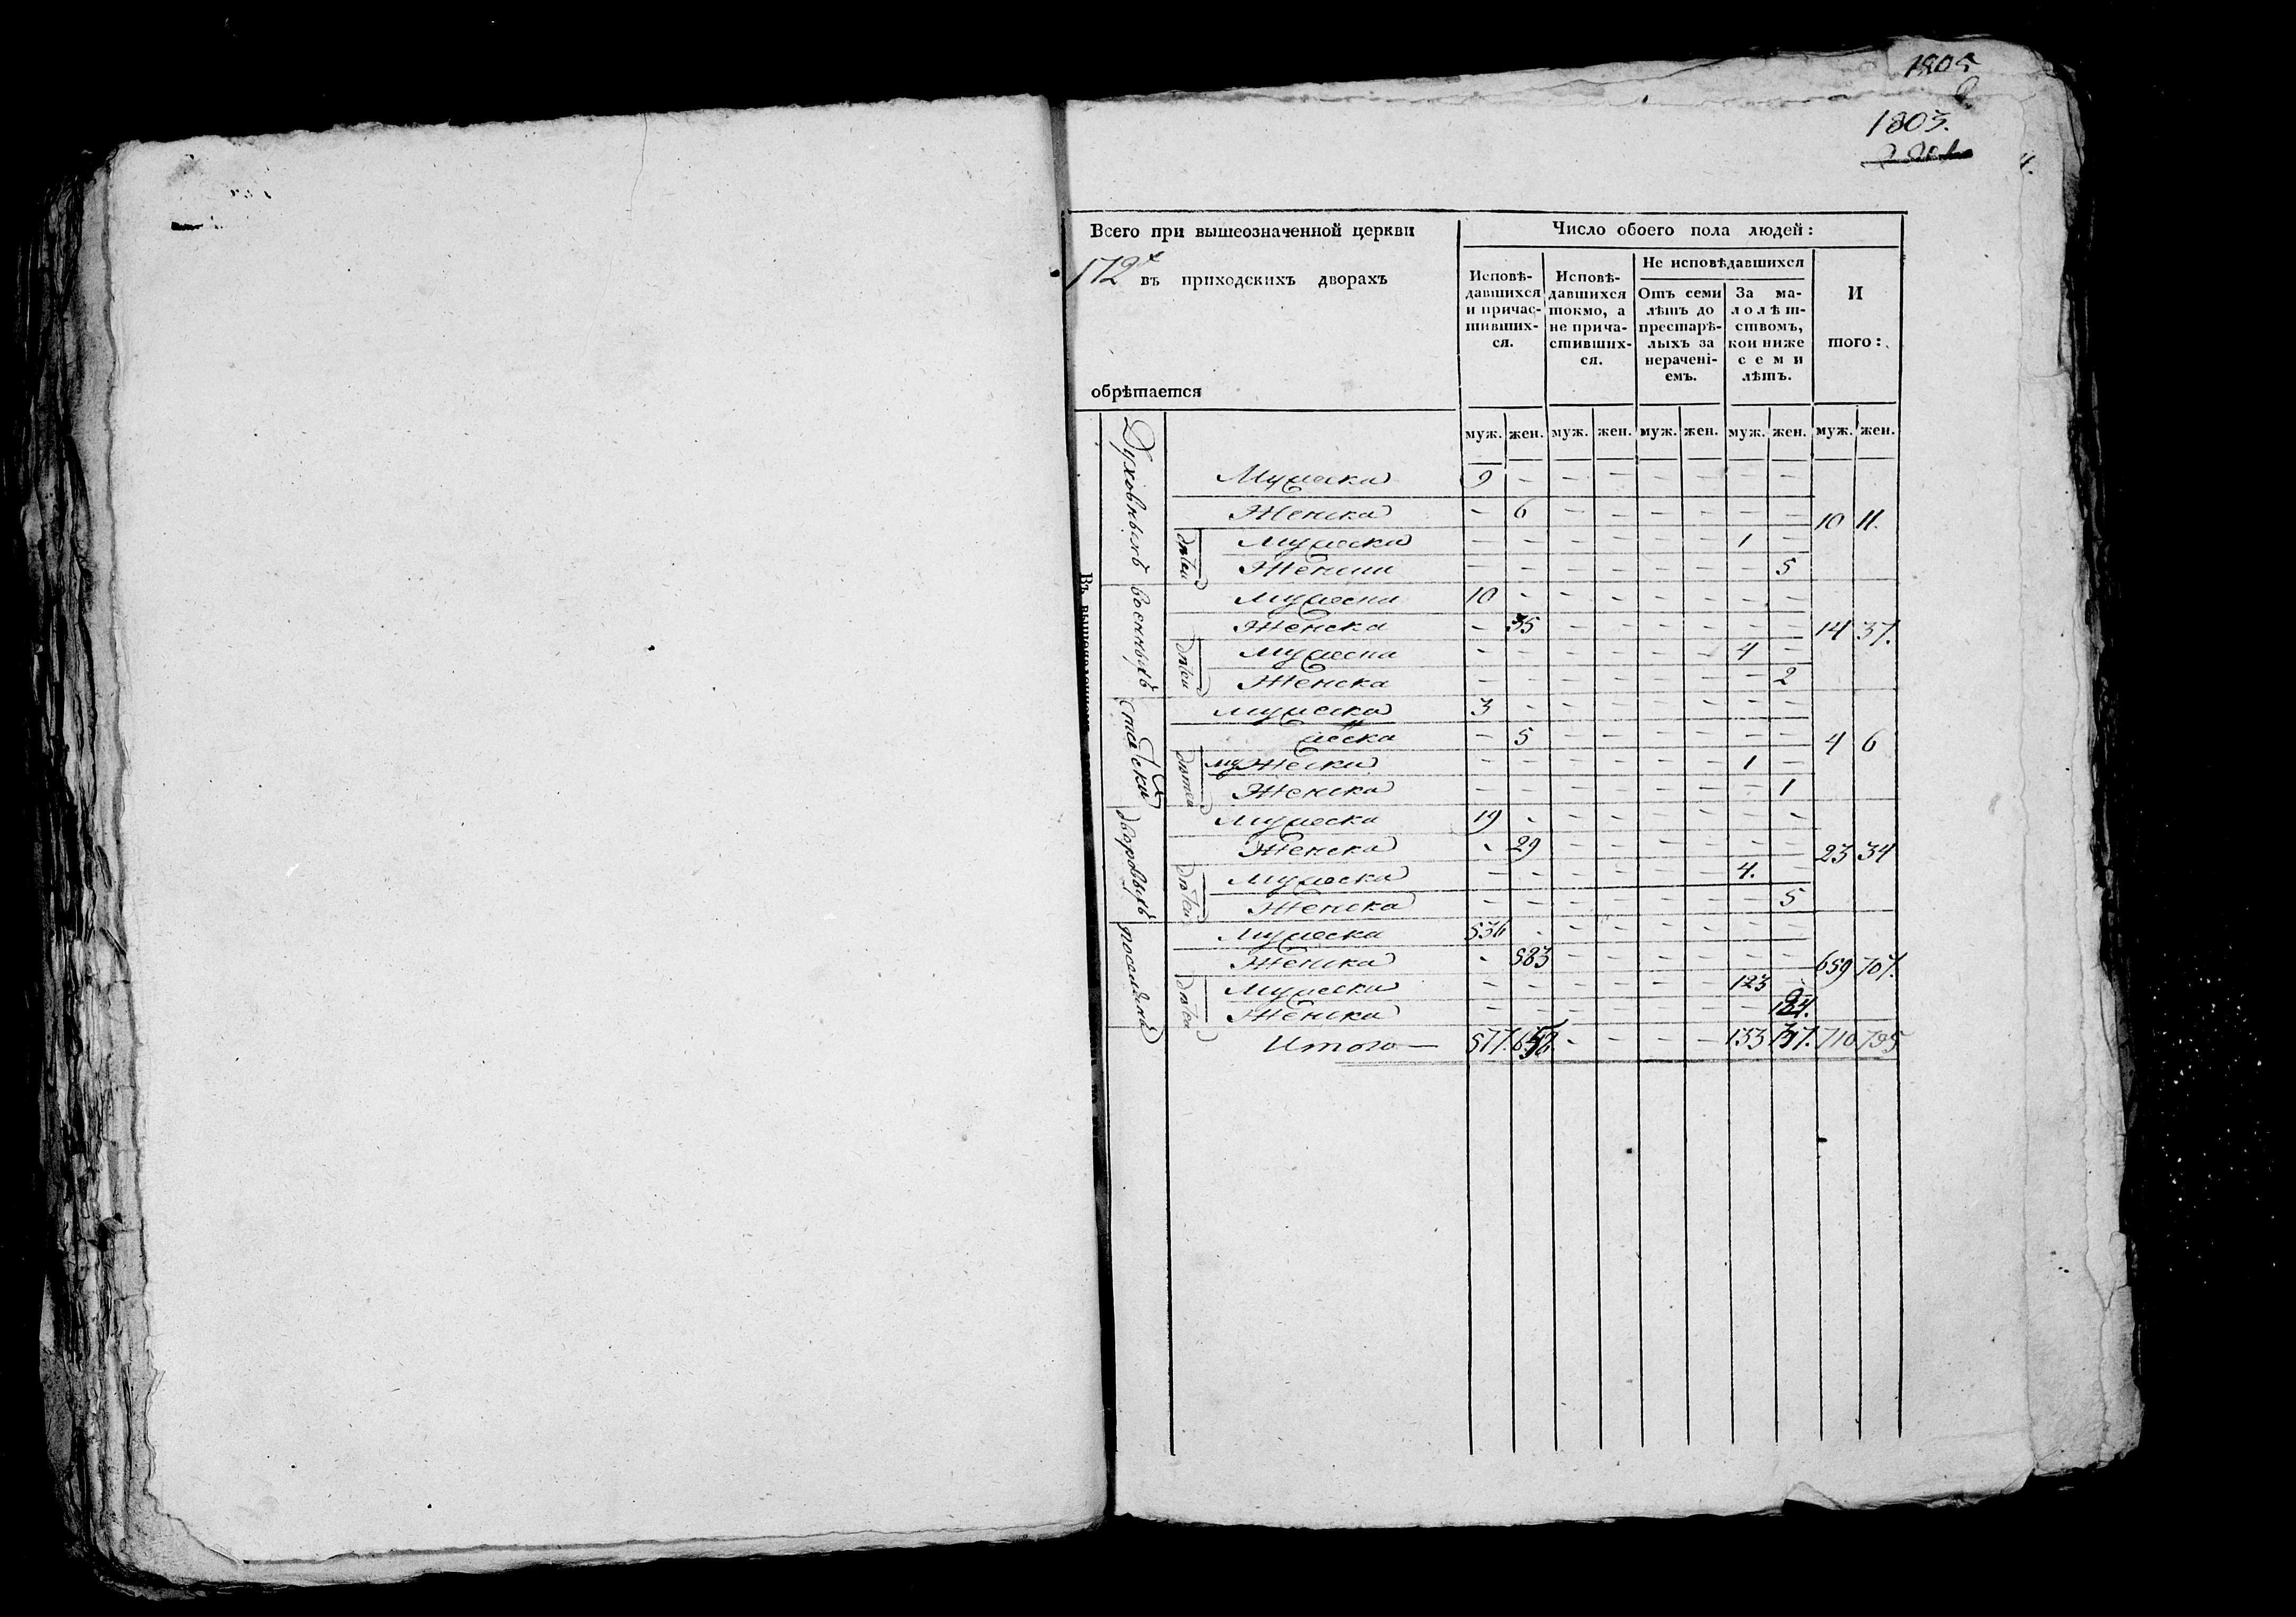 1805
1803.
Всего при вышеозначенной церкви
172х въ приходскихъ дворахъ
обрѣтается
Число обоего пола людей:
Исповѣ-
давшихся
и причас-
тивших-
ся.
Исповѣ-
давшихся
токмо, а
не прича-
стивших-
ся.
Не исповѣдавшихся
Отъ семи
лѣтъ до
престарѣ-
лыхъ за
нерачені-
емъ.
За ма-
лолѣт-
ствомъ,
кои ниже
семи
лѣтъ.
И
того:
муж. жен. муж. жен. муж. жен. муж. жен. муж. жен.
Духовныхъ
Мужеска 9 - - - - - - -
Женска - 6 - - - - - - 10 11.
дѣтей
Мужеска - - - - - - 1 -
Женски - - - - - - - 5
военныхъ
Мужеска 10 - - - - - - -
Женска - 35 - - - - - - 14 37.
дѣтей
Мужеска - - - - - - 4 -
Женска - - - - - - - 2
Мужеска 3 - - - - - - -
жеска - 5 - - - - - - 4 6
дѣтей
муЖеска - - - - - - 1 -
Женска - - - - - - - 1
дворовыхъ
Мужеска 19 - - - - - - -
Женска - 29 - - - - - - 23 34
дѣтей
Мужеска - - - - - - 4. -
Женска - - - - - - - 5
поселянъ
Мужеска 536 - - - - - - -
Женска - 583 - - - - - - 659 707.
дѣтей
Мужеска - - - - - - 123 -
Женска - - - - - - - 124.
Итого — 577. 658 - - - - 133 137. 710 795